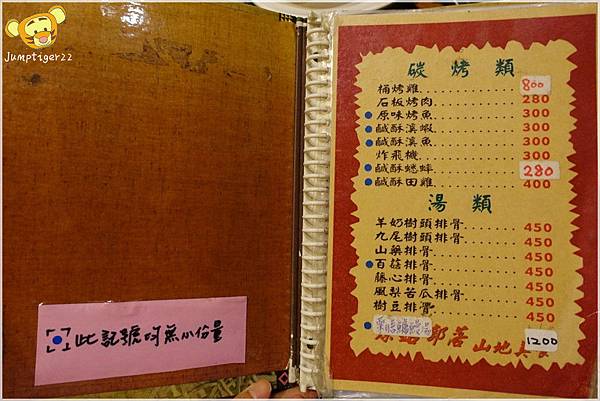 Jumptiger22
此記號的無小份量
碳烤類
桶烤雞 800
石板烤肉 280
原味烤魚 300
鹹酥溪蝦 300
鹹酥溪魚 300
炸飛機 300
鹹酥蟋蟀 280
鹹酥田雞 400
湯類
羊奶樹頭排骨 450
九尾樹頭排骨 450
山藥排骨 450
百菇排骨 450
藤心排骨 450
風梨苦瓜排骨 450
樹豆排骨 450
1200
部落 山地美食